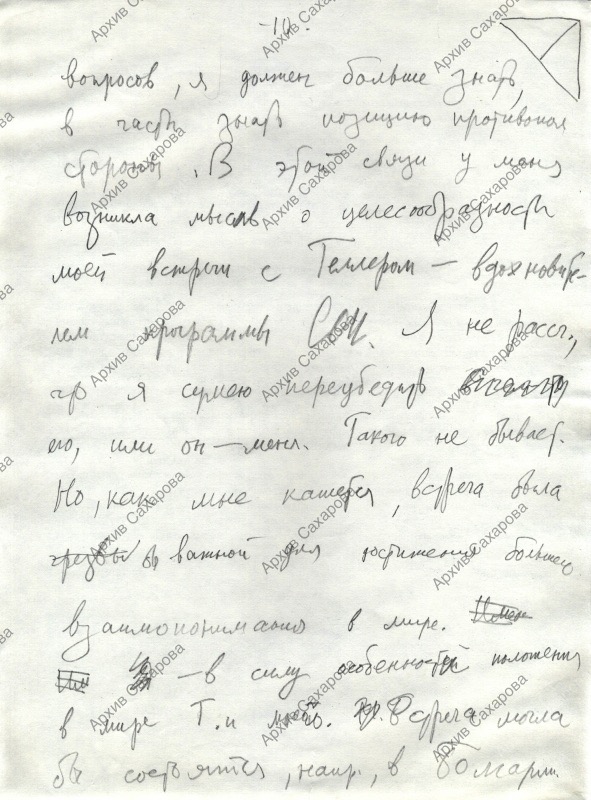 -10.
вопросов, я должен больше знать,
в части знать позицию противопол
стороны. В этой связи у меня
возникла мысль о целесообразности
моей встречи с Теллером — вдохновите-
лем программы СОИ. Я не рассч.,
что я сумею переубедить
его, или он — меня. Такого не бывает.
Но, как мне кажется, встреча была
бы важной для достижения большего
взаимопонимания в мире.
— в силу особенностей положения
в мире Т. и моего. Встреча могла
бы состояться, напр., в Болгарии.
Архив Сахарова